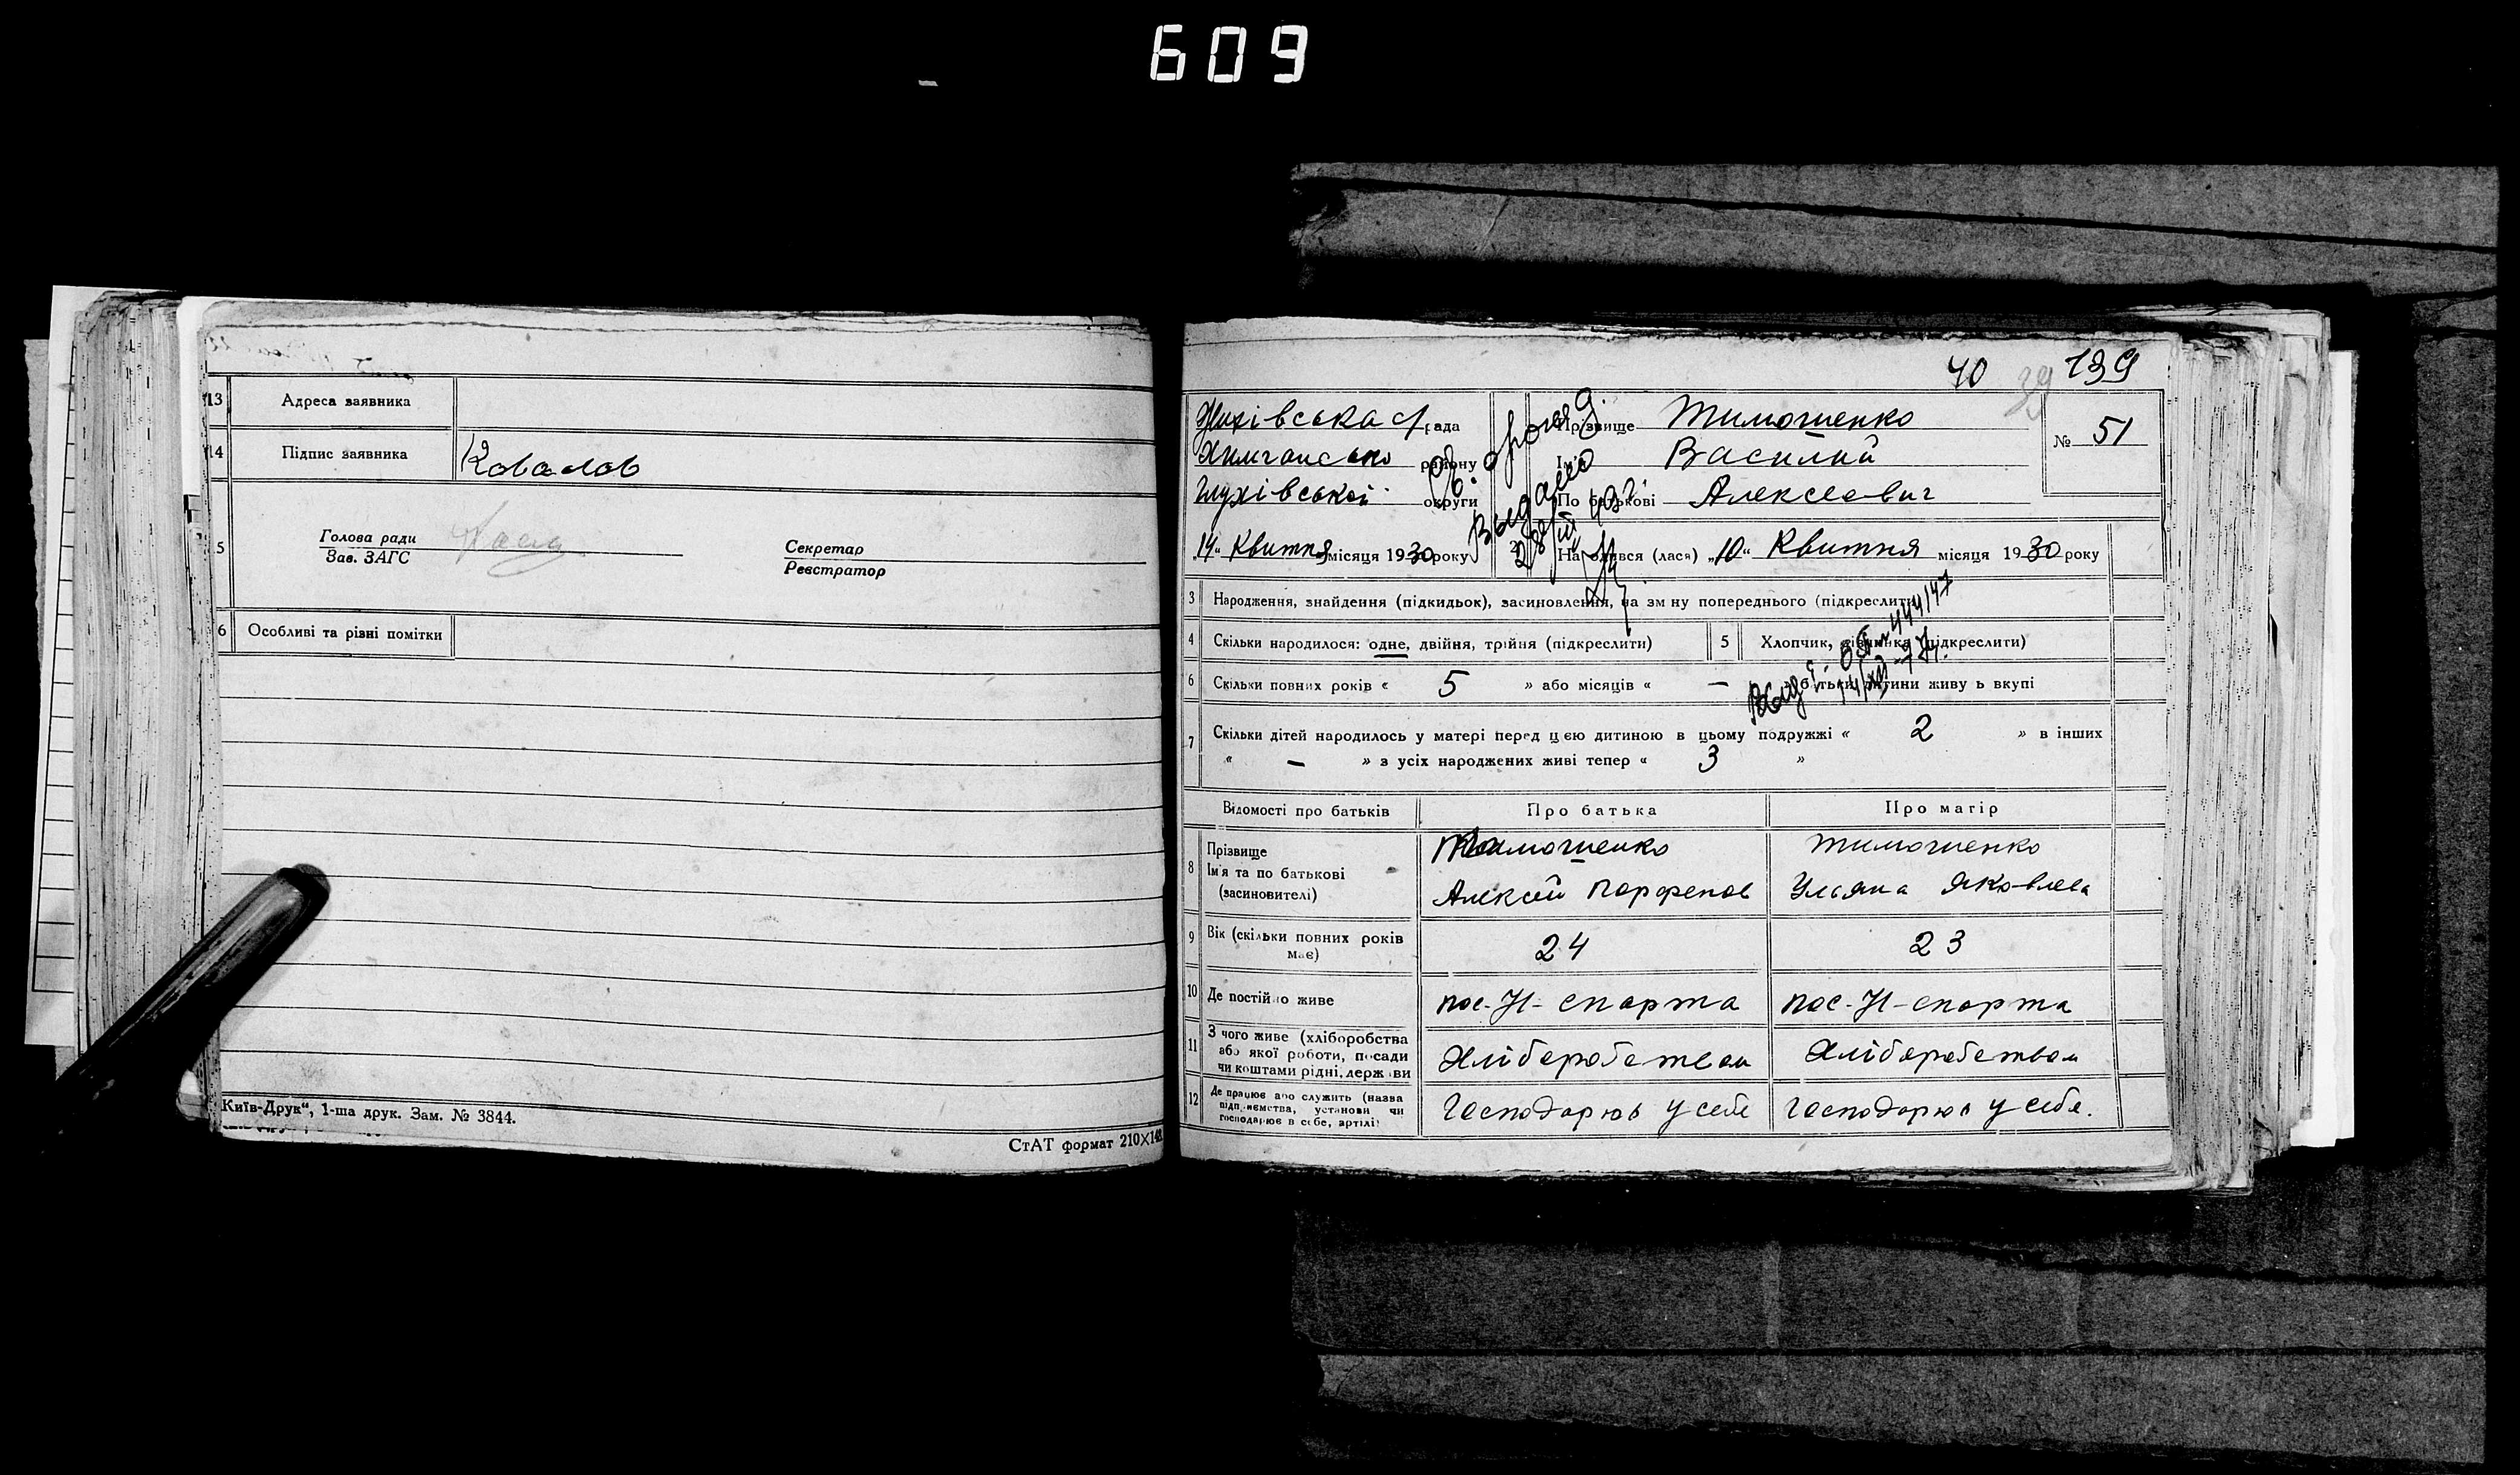 609
13 Адреса заявника
14 Підпис заявника Ковалов
5 Голова ради
Зав. ЗАГС
Секретар
Реєстратор
6 Особливі та різні помітки
Київ-Друк“, 1-ша друк. Зам. № 3844.
СтАТ формат 210×148
40 39 139
рада
району
Глухівської округи
Прізвище Тимошенко
Ім'я Василий
По батькові Алексеевич
№ 51
Выдано
„14“ Квитня місяця 1930 року
2 Народився (лася) „10“ Квитня місяця 1930 року
3 Народження, знайдення (підкидьок), засиновлення, на зміну попереднього (підкреслити)
4 Скільки народилося: одне, двійня, трійня (підкреслити)
5 Хлопчик, дівчинка (підкреслити)
6 Скільки повних років « 5 » або місяців « — батьки дитини живуть вкупі
7 Скільки дітей народилось у матері перед цією дитиною в цьому подружжі « 2 » в інших
« — » з усіх народжених живі тепер « 3 »
Відомості про батьків Про батька Про матір
8 Прізвище
Ім'я та по батькові
(засиновителі)
Тимошенко
Алексей Парфенов
Тимошенко
Ульяна Яковлева
9 Вік (скільки повних років має) 24 23
10 Де постійно живе пос-Н-спарта пос-Н-спарта
11 З чого живе (хліборобства
або якої роботи, посади
чи коштами рідні, держави
Хліборобством Хліборобством
12 Де працює або служить (назва
підприємства, установи чи
господарює в себе, артілі)
Господарює у себе Господарює у себе.